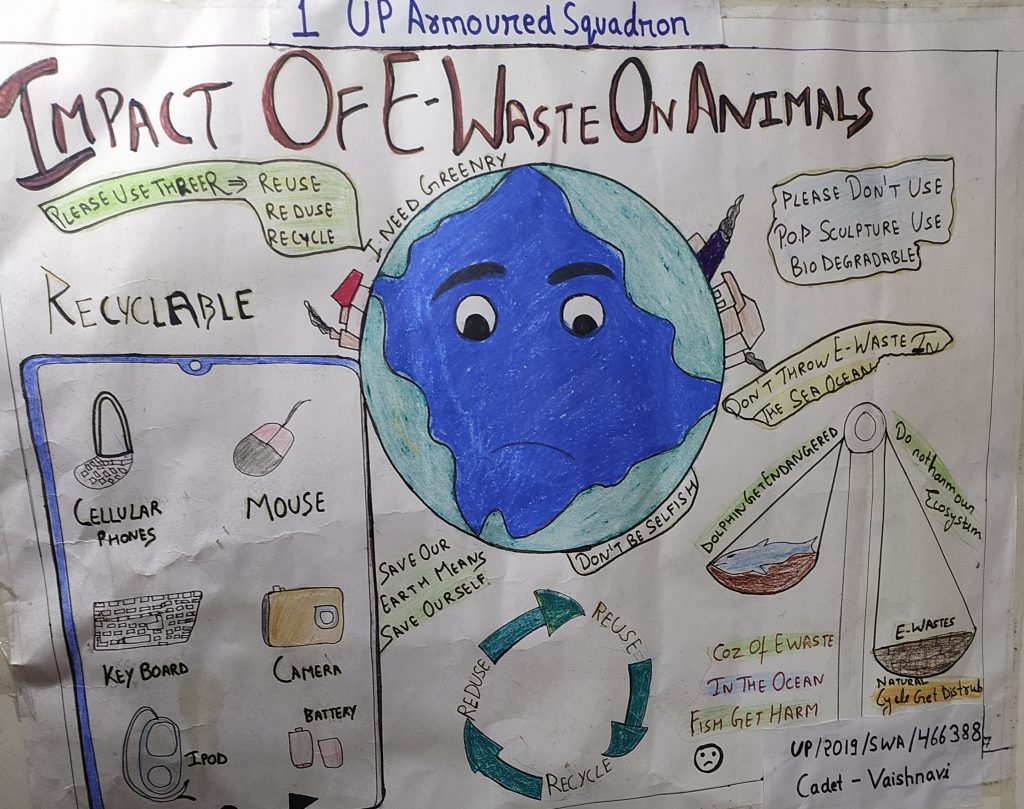 1 UP Armoured Squadron
IMPACT OF E-WASTE ON ANIMALS
PLEASE USE THREER ⇒ REUSE
REDUSE
RECYCLE
I NEED GREENRY
PLEASE DON'T USE
P.O.P SCULPTURE USE
BIO DEGRADABLE
RECYCLABLE
DON'T THROW E-WASTE IN
THE SEA OCEAN.
CELLULAR
PHONES
MOUSE
KEY BOARD
CAMERA
IPOD
BATTERY
DON'T BE SELFISH
SAVE OUR
EARTH MEANS
SAVE OURSELF
REUSE
REDUSE
RECYCLE
DOLPHIN GET ENDANGERED
Do not harm own
Ecosystem
E-WASTES
NATURAL
Cycle Get Distrub
COZ OF EWASTE
IN THE OCEAN
FISH GET HARM
UP/2019/SWA/466388
Cadet - Vaishnavi